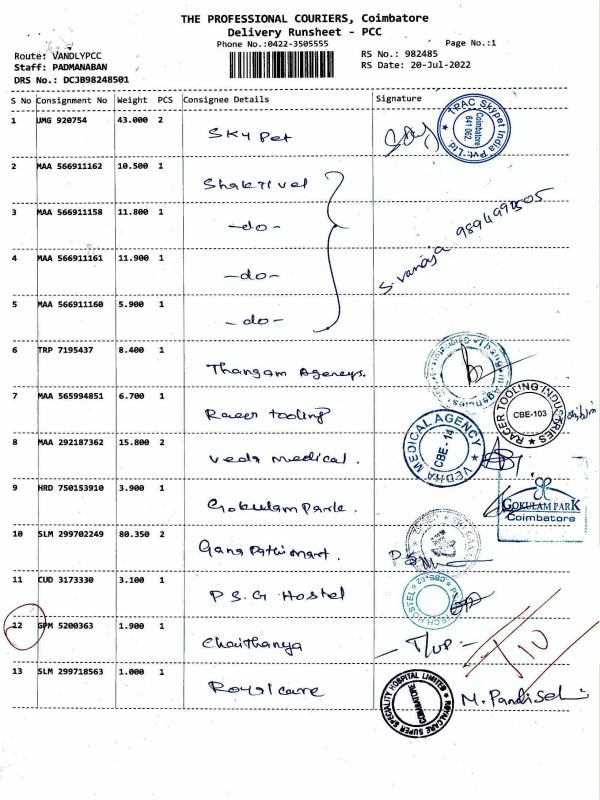 THE PROFESSIONAL COURIERS, Coimbatore
Delivery Runsheet - PCC
Phone No.:0422-3505555
Page No.:1
Route: VANDLYPCC
RS No.: 982485
Staff: PADMANABAN
RS Date: 20-Jul-2022
DRS No.: DCJB98248501
S No Consignment No Weight PCS Consignee Details Signature
1 UMG 920754 43.000 2 Sky Pet
TPAC Skypet India Pvt. Ltd. Coimbatore 641 062.
2 MAA 566911162 10.500 1 Shaktivel
3 MAA 566911158 11.800 1 -do-
4 MAA 566911161 11.900 1 -do-
S. Vanaja
5 MAA 566911160 5.900 1 -do-
6 TRP 7195437 8.400 1 Thangam Agencys.
7 MAA 565994851 6.700 1 Racer tooling
RACER TOOLING INDUSTRIES CBE-103
8 MAA 292187362 15.800 2 Veda medical.
VEDHA MEDICAL AGENCY CBE - 14
9 HRD 750153910 3.900 1 Gokulam Park.
GOKULAM PARK
Coimbatore
10 SLM 299702249 80.350 2 Ganapathi mart.
11 CUD 3173330 3.100 1 P.S.G Hostel
12 GPM 5200363 1.900 1 Chaithanya
13 SLM 299718563 1.000 1 Royal care
ROYALCARE SUPER SPECIALITY HOSPITAL LIMITED COIMBATORE
M. Pandiselvi